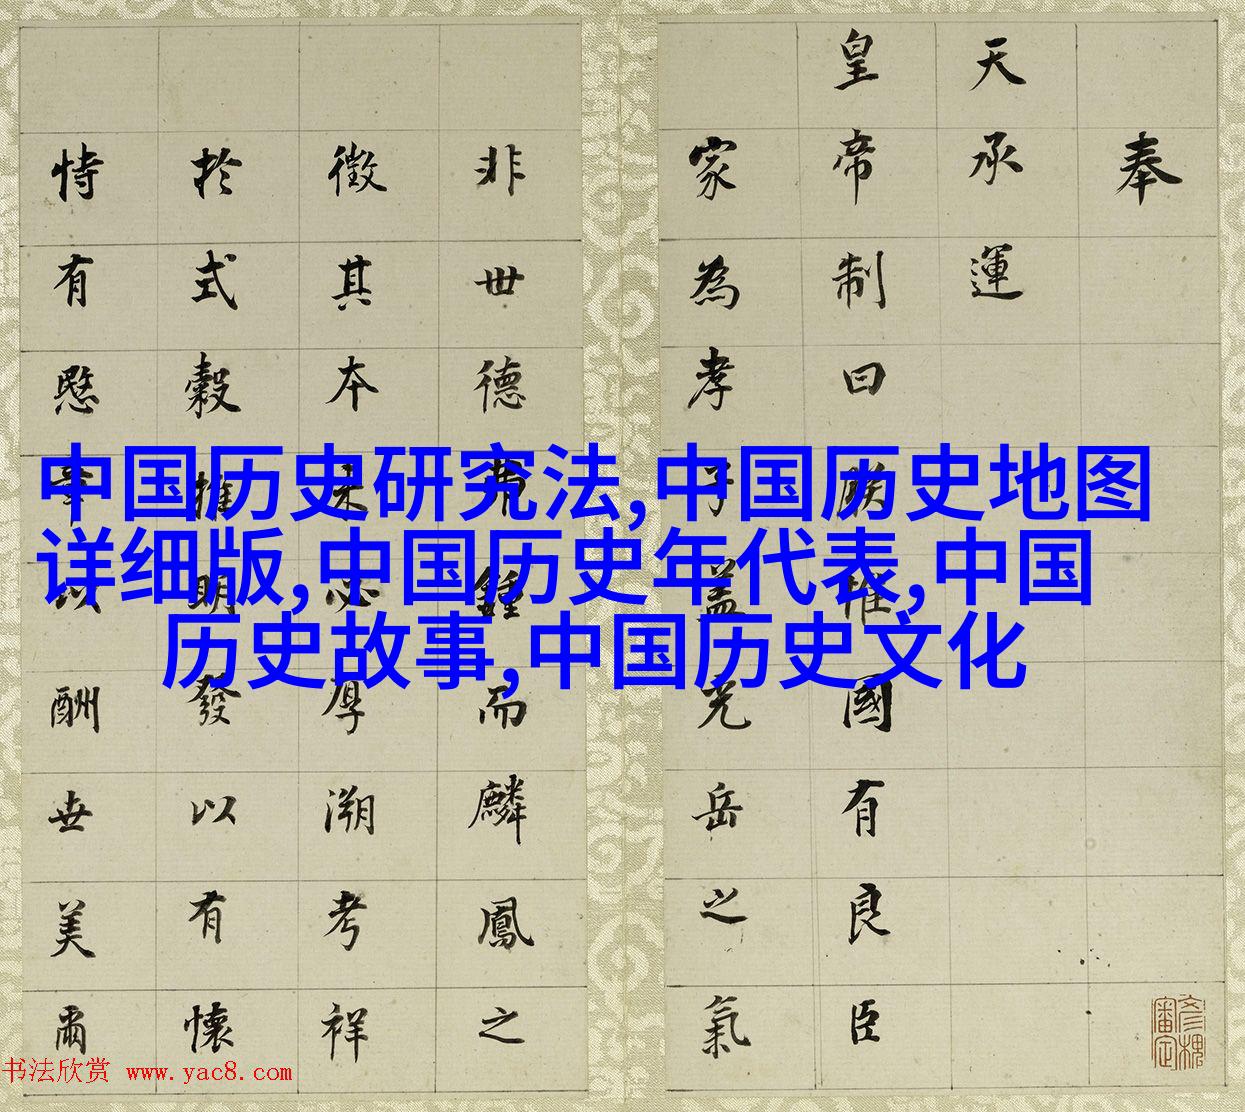 奉
天承運
皇帝制曰朕惟國有良臣
家為孝子蓋光岳之氣
非世德弗鍾而麟鳳之
徵其本必厚溯考祥
於式穀推明發以有懷
恃有愍章以酬世美爾
中国历史研究法,中国历史地图
详细版,中国历史年代表,中国
历史故事,中国历史文化
书法欣赏 www.yac8.com